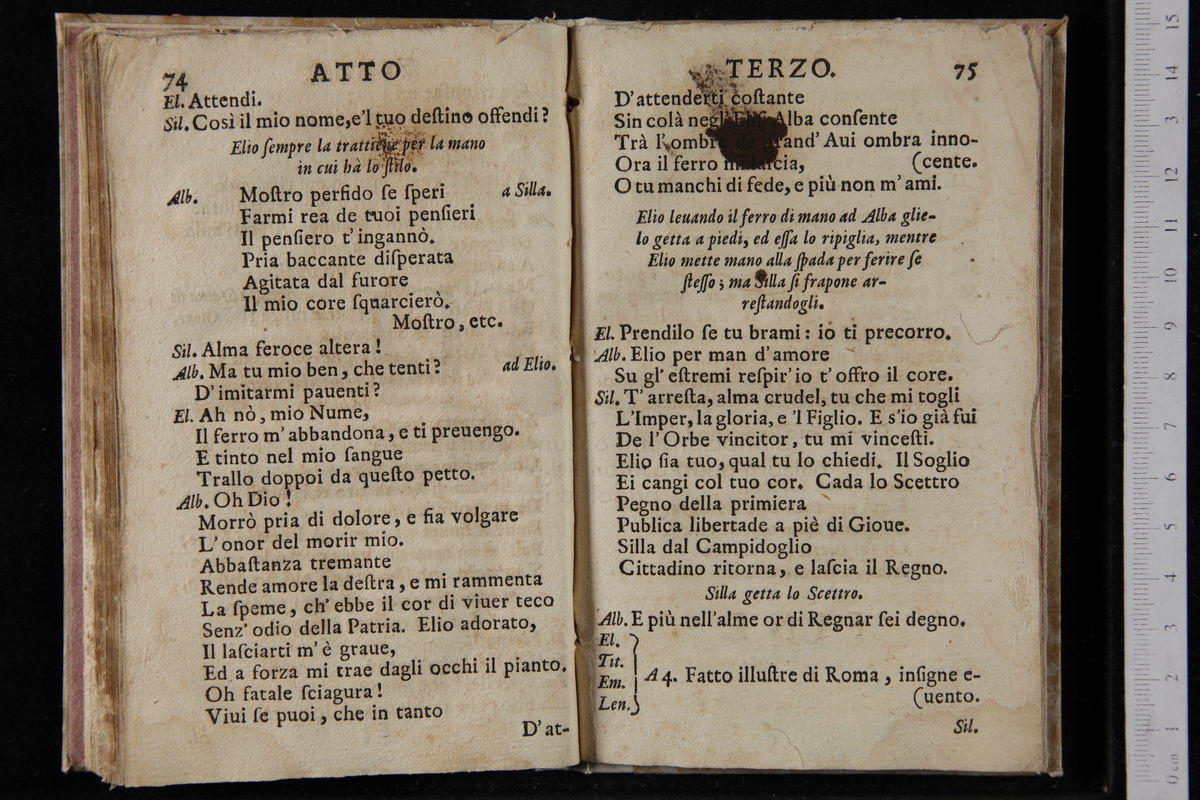 74 ATTO
El. Attendi.
Sil. Così il mio nome,e'l tuo deſtino offendi?
Elio ſempre la trattiene per la mano
in cui hà lo ſtilo.
Alb. Moſtro perfido ſe ſperi a Silla.
Farmi rea de tuoi penſieri
Il penſiero t'ingannò.
Pria baccante diſperata
Agitata dal furore
Il mio core ſquarcierò.
Moſtro, etc.
Sil. Alma feroce altera!
Alb. Ma tu mio ben, che tenti? ad Elio.
D'imitarmi pauenti?
El. Ah nò, mio Nume,
Il ferro m'abbandona, e ti preuengo.
E tinto nel mio ſangue
Trallo doppoi da queſto petto.
Alb. Oh Dio!
Morrò pria di dolore, e fia volgare
L'onor del morir mio.
Abbaſtanza tremante
Rende amore la deſtra, e mi rammenta
La ſpeme, ch'ebbe il cor di viuer teco
Senz'odio della Patria. Elio adorato,
Il laſciarti m'è graue,
Ed a forza mi trae dagli occhi il pianto.
Oh fatale ſciagura!
Viui ſe puoi, che in tanto
D'at-
TERZO. 75
D'attenderti coſtante
Sin colà negl'Eliſi Alba conſente
Trà l'ombre de grand'Aui ombra inno-
Ora il ferro mi laſcia, (cente.
O tu manchi di fede, e più non m'ami.
Elio leuando il ferro di mano ad Alba glie-
lo getta a piedi, ed eſſa lo ripiglia, mentre
Elio mette mano alla ſpada per ferire ſe
ſteſſo; ma Silla ſi frapone ar-
reſtandogli.
El. Prendilo ſe tu brami: io ti precorro.
Alb. Elio per man d'amore
Su gl'eſtremi reſpir'io t'offro il core.
Sil. T'arreſta, alma crudel, tu che mi togli
L'Imper, la gloria, e 'l Figlio. E s'io già fui
De l'Orbe vincitor, tu mi vinceſti.
Elio ſia tuo, qual tu lo chiedi. Il Soglio
Ei cangi col tuo cor. Cada lo Scettro
Pegno della primiera
Publica libertade a piè di Gioue.
Silla dal Campidoglio
Cittadino ritorna, e laſcia il Regno.
Silla getta lo Scettro.
Alb. E più nell'alme or di Regnar ſei degno.
El.
Tit.
Em. A 4. Fatto illuſtre di Roma, inſigne e-
Len. (uento.
Sil.